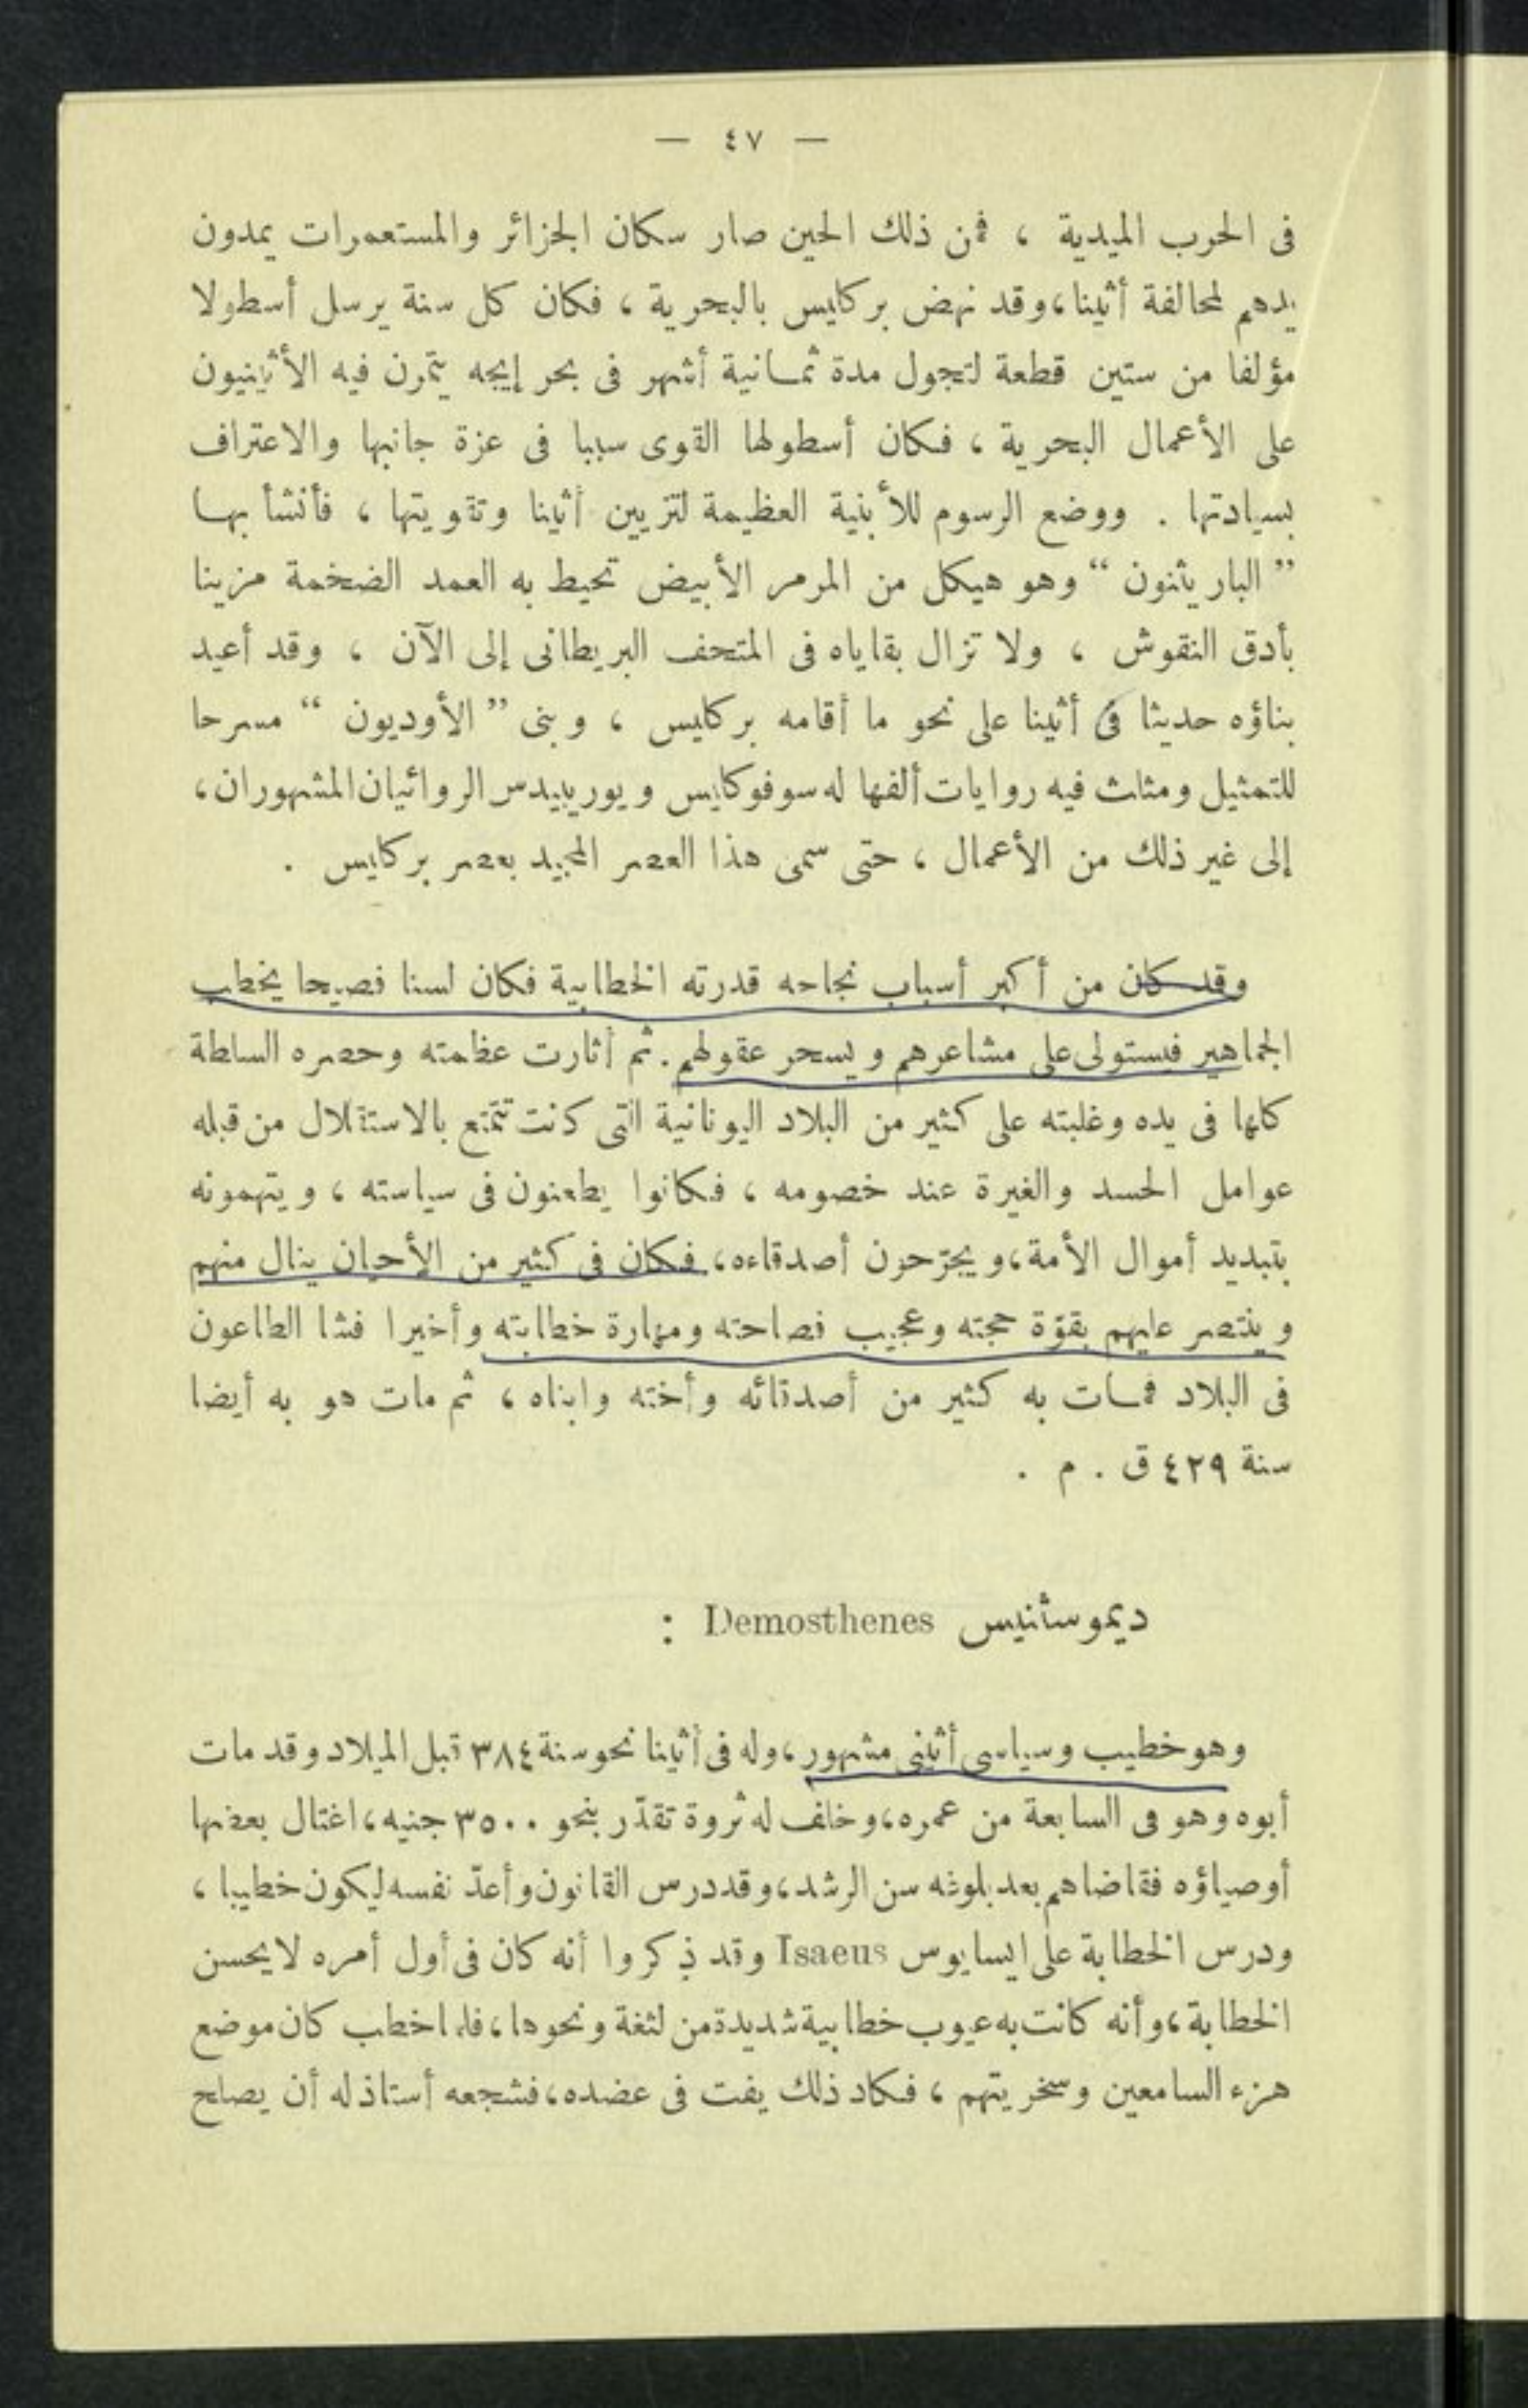 — ٤٧ —
فى الحرب الميدية ، فمن ذلك الحين صار سكان الجزائر والمستعمرات يمدون
يدهم لمحالفة أثينا، وقد نهض بركليس بالبحرية ، فكان كل سنة يرسل أسطولا
مؤلفا من ستين قطعة لتجول مدة ثمـانية أشهر فى بحر إيجه يتمرن فيه الأثينيون
على الأعمال البحرية ، فكان أسطولها القوى سببا فى عزة جانبها والاعتراف
بسيادتها . ووضع الرسوم للأبنية العظيمة لتزيين أثينا وتقويتها ، فأنشأ بهـا
”البارثينون“ وهو هيكل من المرمر الأبيض تحيط به العمد الضخمة مزينا
بأدق النقوش ، ولا تزال بقاياه فى المتحف البريطانى إلى الآن ، وقد أعيد
بناؤه حديثا فى أثينا على نحو ما أقامه بركليس ، وبنى ”الأوديون“ مسرحا
للتمثيل ومثلث فيه روايات ألفها له سوفوكليس ويوريبيدس الروائيان المشهوران،
إلى غير ذلك من الأعمال ، حتى سمى هذا العصر المجيد بعصر بركليس .
وقد كان من أكبر أسباب نجاحه قدرته الخطابية فكان لسنا فصيحا يخطب
الجماهير فيستولى على مشاعرهم ويسحر عقولهم. ثم أثارت عظمته وحصره السلطة
كلها فى يده وغلبته على كثير من البلاد اليونانية التى كانت تتمتع بالاستقلال من قبله
عوامل الحسد والغيرة عند خصومه ، فكانوا يطعنون فى سياسته ، ويتهمونه
بتبديد أموال الأمة، ويجرّحون أصدقاءه، فكان فى كثير من الأحيان ينال منهم
وينتصر عليهم بقوّة حجته وعجيب فصاحته ومهارة خطابته وأخيرا فشا الطاعون
فى البلاد فمـات به كثير من أصدقائه وأخته وابناه ، ثم مات هو به أيضا
سنة ٤٢٩ ق . م .
ديموستنيس Demosthenes :
وهو خطيب وسياسى أثينى مشهور، وله فى أثينا نحو سنة ٣٨٤ قبل الميلاد وقد مات
أبوه وهو فى السابعة من عمره، وخلف له ثروة تقدّر بنحو ٣٥٠٠ جنيه، اغتال بعضها
أوصياؤه فقاضاهم بعد بلوغه سن الرشد، وقد درس القانون وأعدّ نفسه ليكون خطيبا ،
ودرس الخطابة على ايسايوس Isaeus وقد ذكروا أنه كان فى أول أمره لا يحسن
الخطابة، وأنه كانت به عيوب خطابية شديدة من لثغة ونحوها، فلما خطب كان موضع
هزء السامعين وسخريتهم ، فكاد ذلك يفت فى عضده، فشجعه أستاذ له أن يصلح